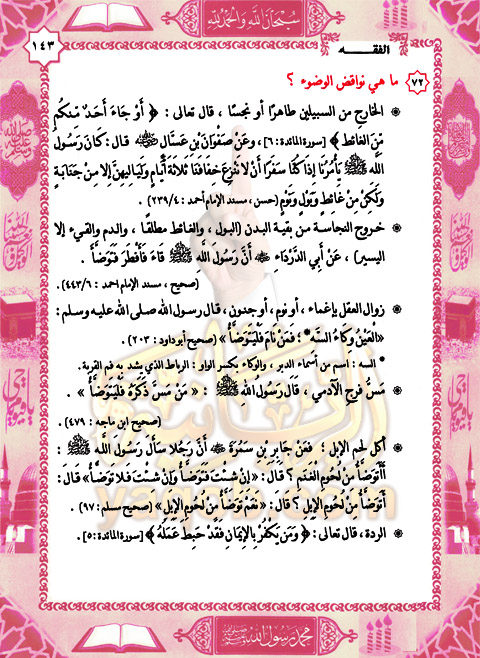 سُبْحَانَ اللَّه وَالْحَمْدُ لِلَّه
الفقـــه
١٤٣
٧٢ ما هي نواقض الوضوء ؟
الخارج من السبيلين طاهرًا أو نجسًا ، قال تعالى : ﴿ أَوْ جَاءَ أَحَدٌ مِّنكُم
مِّنَ الْغَائِطِ ﴾ [سورة المائدة:٦] ، وعَنْ صَفْوَانَ بْنِ عَسَّالٍ ﷺ قال: كَانَ رَسُولُ
اللَّهِ ﷺ يَأْمُرُنَا إِذَا كُنَّا سَفَرًا أَنْ لَا نَنْزِعَ خِفَافَنَا ثَلَاثَةَ أَيَّامٍ وَلَيَالِيهِنَّ إِلَّا مِنْ جَنَابَةٍ
وَلَكِنْ مِنْ غَائِطٍ وَبَوْلٍ وَنَوْمٍ (حسن ، مسند الإمام أحمد : ٢٣٩/٤)
خروج النجاسة من بقية البدن (البول ، والغائط مطلقًا ، والدم والقيء إلا
اليسير) ، عَنْ أَبِي الدَّرْدَاءِ أَنَّ رَسُولَ اللَّهِ ﷺ قَاءَ فَأَفْطَرَ فَتَوَضَّأَ .
(صحيح ، مسند الإمام احمد : ٤٤٣/٦) .
زوال العقل بإغماء ، أو نوم ، أو جنون ، قال رسول الله صلى الله عليه وسلم :
«الْعَيْنُ وِكَاءُ السَّه* ؛ فَمَنْ نَامَ فَلْيَتَوَضَّأْ» (صحيح أبو داود : ٢٠٣) .
* السه : اسم من أسماء الدبر ، والوكاء بكسر الواو : الرباط الذي يشد به فم القربة .
مَسُّ فرج الآدمي ، قال رَسُولُ اللهِ ﷺ : « مَنْ مَسَّ ذَكَرَهُ فَلْيَتَوَضَّأْ » .
(صحيح ابن ماجه : ٤٧٩)
أكل لحم الإبل ؛ فعَنْ جَابِرِ بْنِ سَمُرَةَ أَنَّ رَجُلًا سَأَلَ رَسُولَ اللَّهِ ﷺ :
أَأَتَوَضَّأُ مِنْ لُحُومِ الْغَنَمِ ؟ قال : «إِنْ شِئْتَ فَتَوَضَّأْ وَإِنْ شِئْتَ فَلَا تَوَضَّأْ» قَالَ :
أَتَوَضَّأُ مِنْ لُحُومِ الْإِبِلِ ؟ قَالَ : «نَعَمْ تَوَضَّأْ مِنْ لُحُومِ الْإِبِلِ» (صحيح مسلم : ٩٧) .
الردة ، قال تعالى : ﴿ وَمَن يَكْفُرْ بِالْإِيمَانِ فَقَدْ حَبِطَ عَمَلُهُ ﴾ [سورة المائدة:٥] .
مُحَمَّد رَسُولُ اللَّه ﷺ